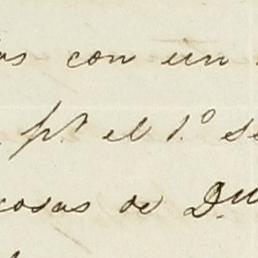 as con un
pr el 1º se
cosas de Du